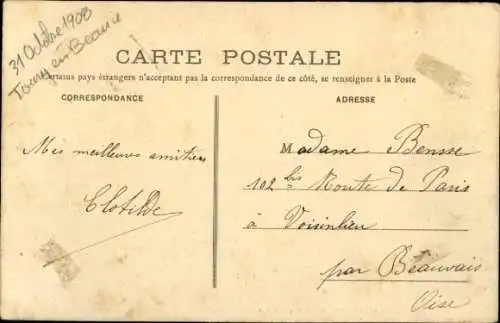 31 Octobre 1908
Toury en Beauce
CARTE POSTALE
Certains pays étrangers n'acceptant pas la correspondance de ce côté, se renseigner à la Poste
CORRESPONDANCE
ADRESSE
Mes meilleures amitiés
Clotilde
Madame Bensse
102 bis Route de Paris
à Voisinlieu
par Beauvais
Oise